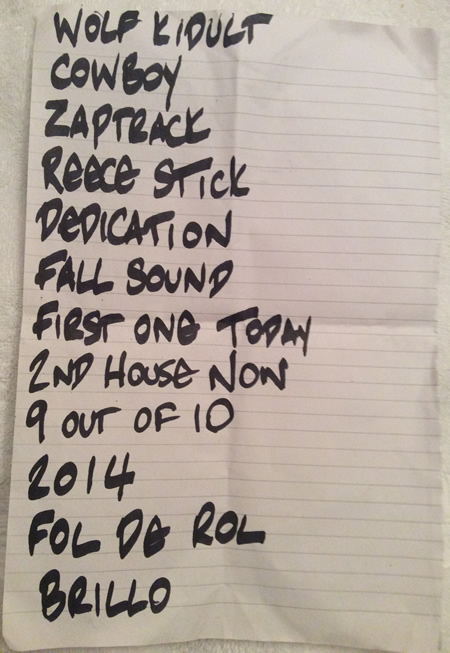 WOLF KIDULT
COWBOY
ZAPTRACK
REECE STICK
DEDICATION
FALL SOUND
FIRST ONE TODAY
2ND HOUSE NOW
9 OUT OF 10
2014
FOL DE ROL
BRILLO